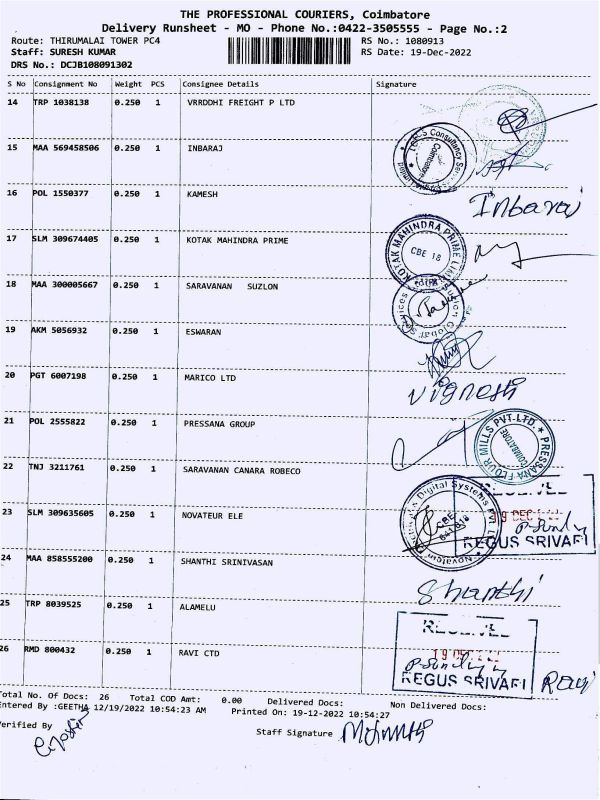 THE PROFESSIONAL COURIERS, Coimbatore
Delivery Runsheet - MO - Phone No.:0422-3505555 - Page No.:2
Route: THIRUMALAI TOWER PC4 RS No.: 1080913
Staff: SURESH KUMAR RS Date: 19-Dec-2022
DRS No.: DCJB108091302
S No Consignment No Weight PCS Consignee Details Signature
14 TRP 1038138 0.250 1 VRRDDHI FREIGHT P LTD
15 MAA 569458506 0.250 1 INBARAJ
16 POL 1550377 0.250 1 KAMESH
Inbaraj
17 SLM 309674405 0.250 1 KOTAK MAHINDRA PRIME
KOTAK MAHINDRA PRIME
CBE 18
18 MAA 300005667 0.250 1 SARAVANAN SUZLON
19 AKM 5056932 0.250 1 ESWARAN
20 PGT 6007198 0.250 1 MARICO LTD
Vignesh
21 POL 2555822 0.250 1 PRESSANA GROUP
PRESSANA FLOUR MILLS PVT-LTD.
COIMBATORE
22 TNJ 3211761 0.250 1 SARAVANAN CANARA ROBECO
23 SLM 309635605 0.250 1 NOVATEUR ELE
Digital Systems
CBE
REGUS SRIVARI
24 MAA 858555200 0.250 1 SHANTHI SRINIVASAN
Shanthi
25 TRP 8039525 0.250 1 ALAMELU
26 RMD 800432 0.250 1 RAVI CTD
19 DEC
REGUS SRIVARI
Ravi
Total No. Of Docs: 26 Total COD Amt: 0.00 Delivered Docs: Non Delivered Docs:
Entered By :GEETHA 12/19/2022 10:54:23 AM Printed On: 19-12-2022 10:54:27
Verified By
Staff Signature